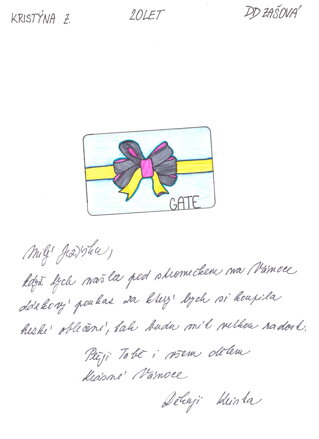 KRISTÝNA Z. 20LET DD ZAŠOVÁ
GATE
Milý Ježíšku,
když bych našla pod stromečkem na Vánoce
dárkový poukaz za který bych si koupila
hezké oblečení, tak budu mít velkou radost.
Přeji Tobě i všem dětem
krásné Vánoce
Děkuji Krista